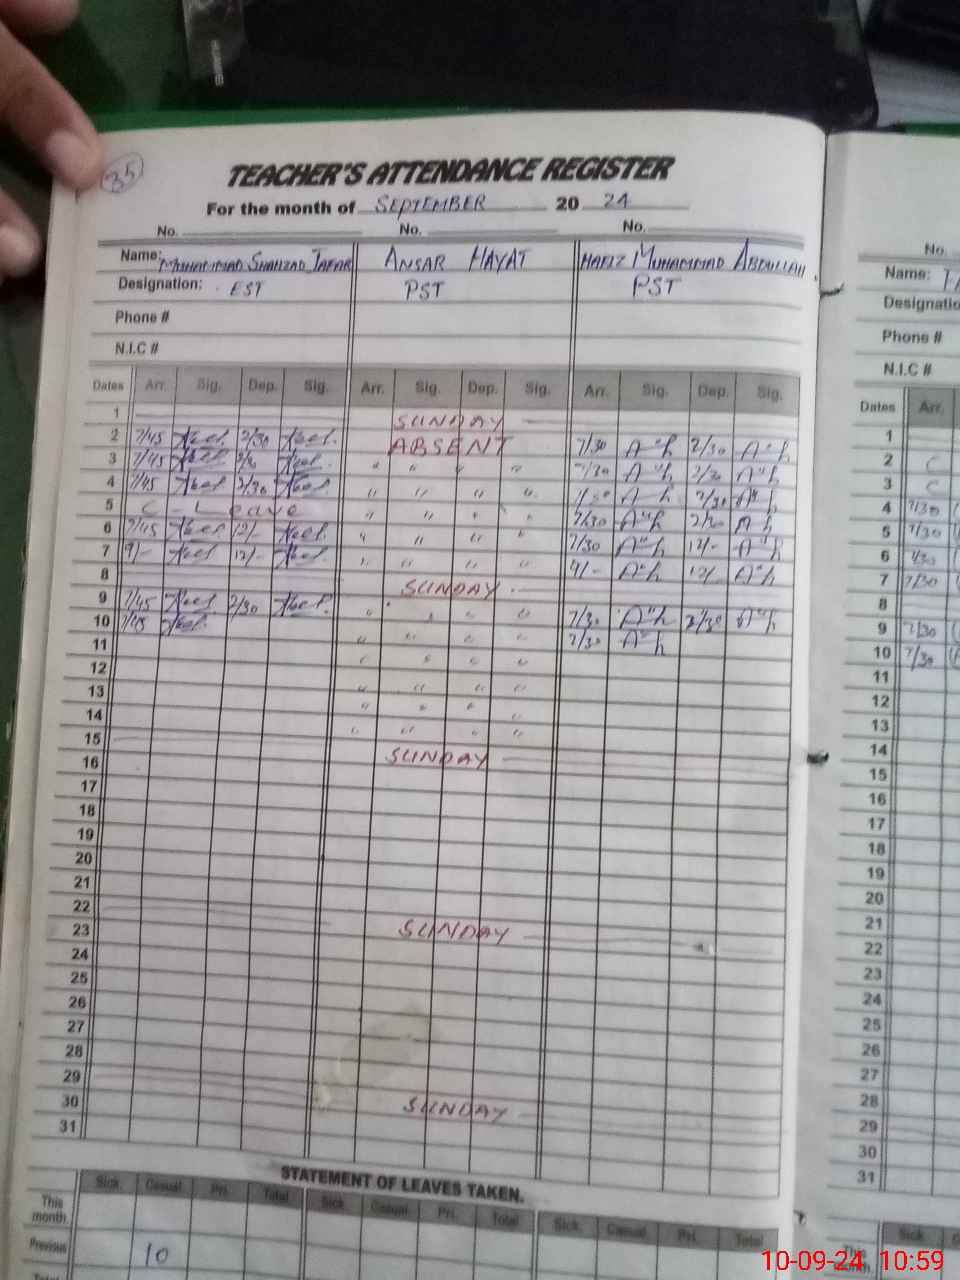 35
TEACHER'S ATTENDANCE REGISTER
For the month of SEPTEMBER 20 24
No. No. No.
Name: MUHAMMAD SHAHZAD ZAFAR ANSAR HAYAT HAFIZ MUHAMMAD ABDULLAH
Designation: EST PST PST
Phone #
N.I.C #
Dates Arr. Sig. Dep. Sig. Arr. Sig. Dep. Sig. Arr. Sig. Dep. Sig.
1 SUNDAY
2 7/45 2/30 ABSENT 7/30 2/30
3 7/45 " " " " 7/30 2/30
4 7/45 2/30 " " " " 7/30 2/30
5 C - Leave " " " " 7/30 2/30
6 7/45 12/- " " " " 7/30 12/-
7 9/- 12/- " " " " 9/- 12/-
8 SUNDAY
9 7/45 2/30 " " " " 7/30 2/30
10 7/45 " " " " 7/30
11 " " " "
12 " " " "
13 " " " "
14 " " " "
15 SUNDAY
16
17
18
19
20
21
22 SUNDAY
23
24
25
26
27
28
29 SUNDAY
30
31
STATEMENT OF LEAVES TAKEN.
Sick. Casual. Pri. Total Sick. Casual. Pri. Total Sick. Casual. Pri. Total
This month.
Previous 10
Total
No.
Name:
Designatio
Phone #
N.I.C #
Dates Arr.
1
2 C
3 C
4 7/30
5 7/30
6 7/30
7 7/30
8
9 7/30
10 7/30
11
12
13
14
15
16
17
18
19
20
21
22
23
24
25
26
27
28
29
30
31
Sick.
This month.
10-09-24 10:59